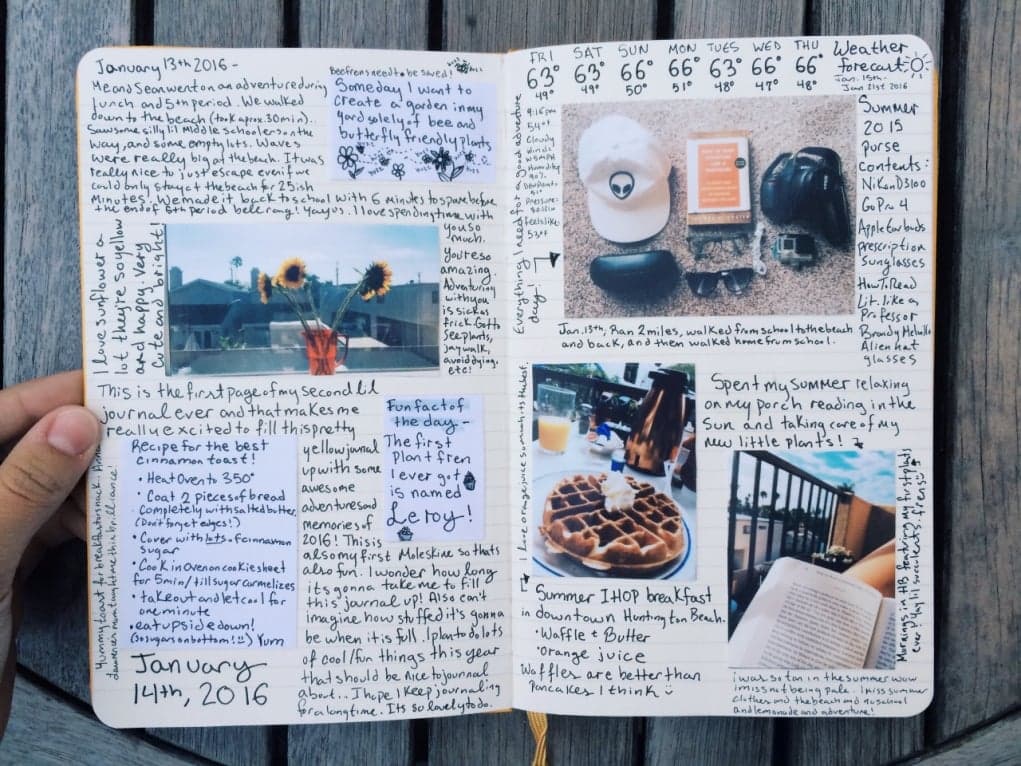 January 13th 2016 -
Me and Sean went on an adventure during
lunch and 5th period. We walked
down to the beach (took aprox. 30min)..
Saw some silly lil middle schoolers on the
way, and some empty lots. Waves
were really big at the beach. It was
really nice to just escape even if we
could only stay at the beach for 25ish
minutes. We made it back to school with 6 minutes to spare before
the end of 6th period bell rang! Yay us. I love spending time with
you so
much.
You're so
amazing.
Adventuring
with you
is sick as
frick. Got to
see plants,
jay walk,
avoid dying,
etc!
Bee frens need to be saved!
Someday I want to
create a garden in my
yard solely of bee and
butterfly friendly plants
I love sunflower a
lot they're so yellow
and happy. Very
cute and bright!
This is the first page of my second lil
journal ever and that makes me
really excited to fill this pretty
yellow journal
up with some
awesome
adventures and
memories of
2016! This is
also my first Moleskine so thats
also fun. I wonder how long
its gonna take me to fill
this journal up! Also can't
imagine how stuffed it's gonna
be when it is full. I plan to do lots
of cool/fun things this year
that should be nice to journal
about.. I hope I keep journaling
for a long time. Its so lovely to do.
Fun fact of
the day -
The first
plant fren
I ever got
is named
Leroy!
Recipe for the best
cinnamon toast!
• Heat Oven to 350°
• Coat 2 pieces of bread
completely with salted butter
(Don't forget edges!)
• Cover with lots of cinnamon
sugar
• Cook in oven on cookie sheet
for 5min/till sugar carmelizes
• take out and let cool for
one minute
• eat upside down!
(so sugars on bottom!!) Yum
Yummy toast for breakfast or snack..
January
14th, 2016
FRI SAT SUN MON TUES WED THU
63° 63° 66° 66° 63° 66° 66°
49° 49° 50° 51° 48° 47° 48°
Weather
forecast
Jan. 15th-
Jan 21st 2016
9:16pm
54°F
Cloudy
Winds
Humidity
90%
Dew Point:
51°
Pressure:
feels like:
Everything I need for a good adventure
day!
Summer
2015
purse
contents:
Nikon D3100
GoPro 4
Apple Earbuds
prescription
sunglasses
How To Read
Lit. like a
Professor
Brandy Melville
Alien hat
glasses
Jan. 13th, Ran 2 miles, walked from school to the beach
and back, and them walked home from school.
I love orange juice sum with its the best.
Summer IHOP breakfast
in downtown Huntington Beach.
• Waffle + Butter
• orange juice
Waffles are better than
Pancakes I think
Spent my summer relaxing
on my porch reading in the
sun and taking care of my
new little plants!
Mornings in HB featuring my first plants
ever! Yay lil succulents. frens!
i was so tan in the summer wow
i miss not being pale. I miss summer
clothes and the beach and no school
and lemonade and adventure!